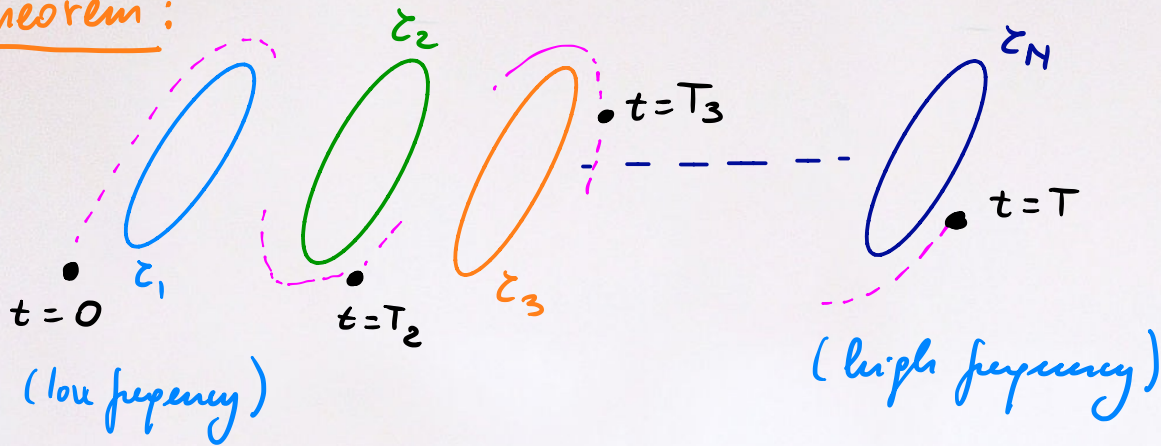 heorem :
τ₂
τ_N
t = T₃
t = T
τ₁
τ₃
t = 0
t = T₂
(low freqency)
(high frequency)